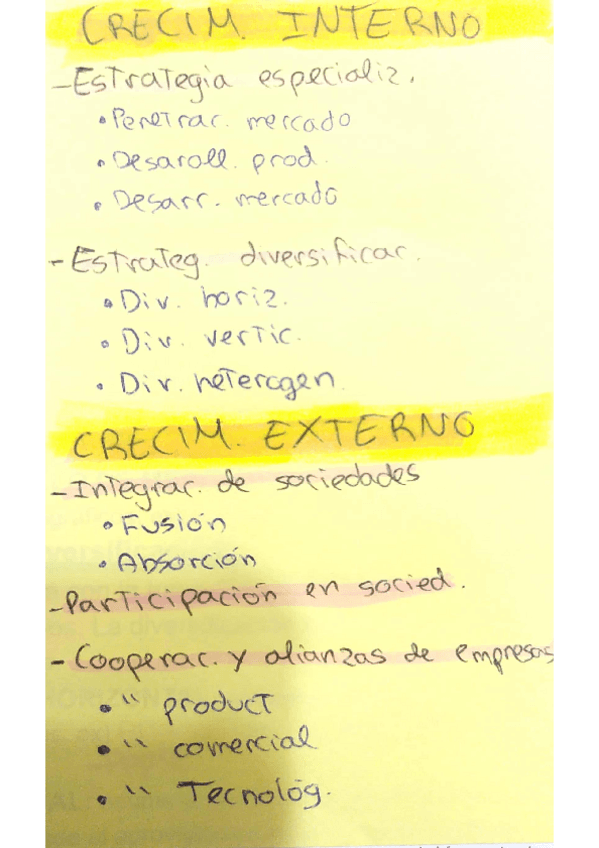 CRECIM. INTERNO
- Estrategia especializ.
• Penetrac. mercado
• Desaroll. prod.
• Desarr. mercado
- Estrateg. diversificar.
• Div. horiz.
• Div. vertic.
• Div. heterogen.
CRECIM. EXTERNO
- Integrac. de sociedades
• Fusión
• Absorción
- Participación en socied.
- Cooperac. y alianzas de empresas
• " product
• " comercial
• " Tecnológ.